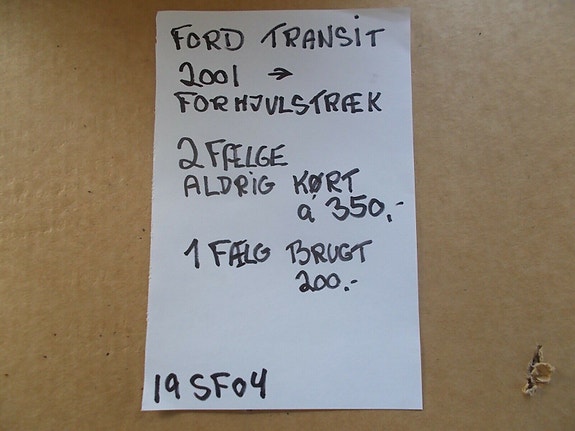 FORD TRANSIT
2001 →
FORHJULSTRÆK
2 FÆLGE
ALDRIG KØRT
á 350,-
1 FÆLG BRUGT
200.-
19SF04